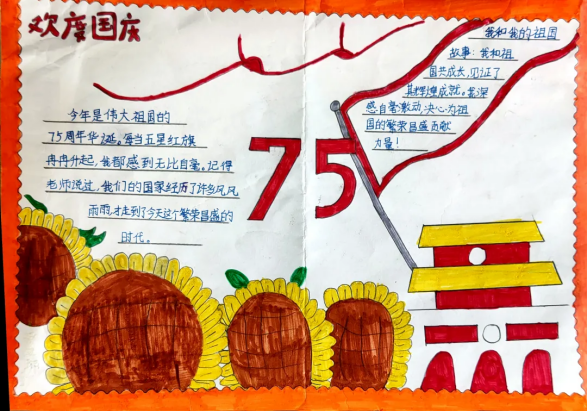 欢度国庆
今年是伟大祖国的
75周年华诞。每当五星红旗
冉冉升起，我都感到无比自毫。记得
老师说过，我们的国家经历了许多风风
雨雨，才走到了今天这个繁荣昌盛的
时代。
75
我和我的祖国
故事：我和祖
国共成长，见证了
其辉煌成就。我深
感自毫激动，决心为祖
国的繁荣昌盛贡献
力量！